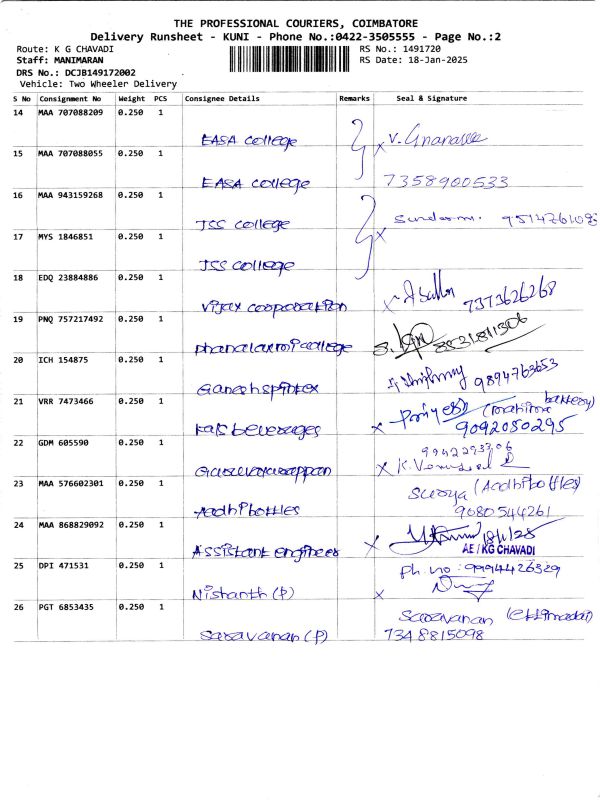 THE PROFESSIONAL COURIERS, COIMBATORE
Delivery Runsheet - KUNI - Phone No.:0422-3505555 - Page No.:2
Route: K G CHAVADI
RS No.: 1491720
Staff: MANIMARAN
RS Date: 18-Jan-2025
DRS No.: DCJB149172002
Vehicle: Two Wheeler Delivery
S No Consignment No Weight PCS Consignee Details Remarks Seal & Signature
14 MAA 707088209 0.250 1
EASA college V.
15 MAA 707088055 0.250 1
EASA college 7358900533
16 MAA 943159268 0.250 1
JSS college
17 MYS 1846851 0.250 1
JSS college
18 EDQ 23884886 0.250 1
Vijay cooporation 7373626268
19 PNQ 757217492 0.250 1
college
20 ICH 154875 0.250 1
Ganesh spintex 9894763653
21 VRR 7473466 0.250 1
Kals beverages 9092050295
22 GDM 605590 0.250 1
9942293306
K.
23 MAA 576602301 0.250 1
Surya (Aadhibottles)
Aadhi bottles 9080544261
24 MAA 868829092 0.250 1
Assistant engineer
AE / KG CHAVADI
25 DPI 471531 0.250 1
Ph no : 9994426329
Nishanth (P)
26 PGT 6853435 0.250 1
Saravanan
Saravanan (P) 7348815098